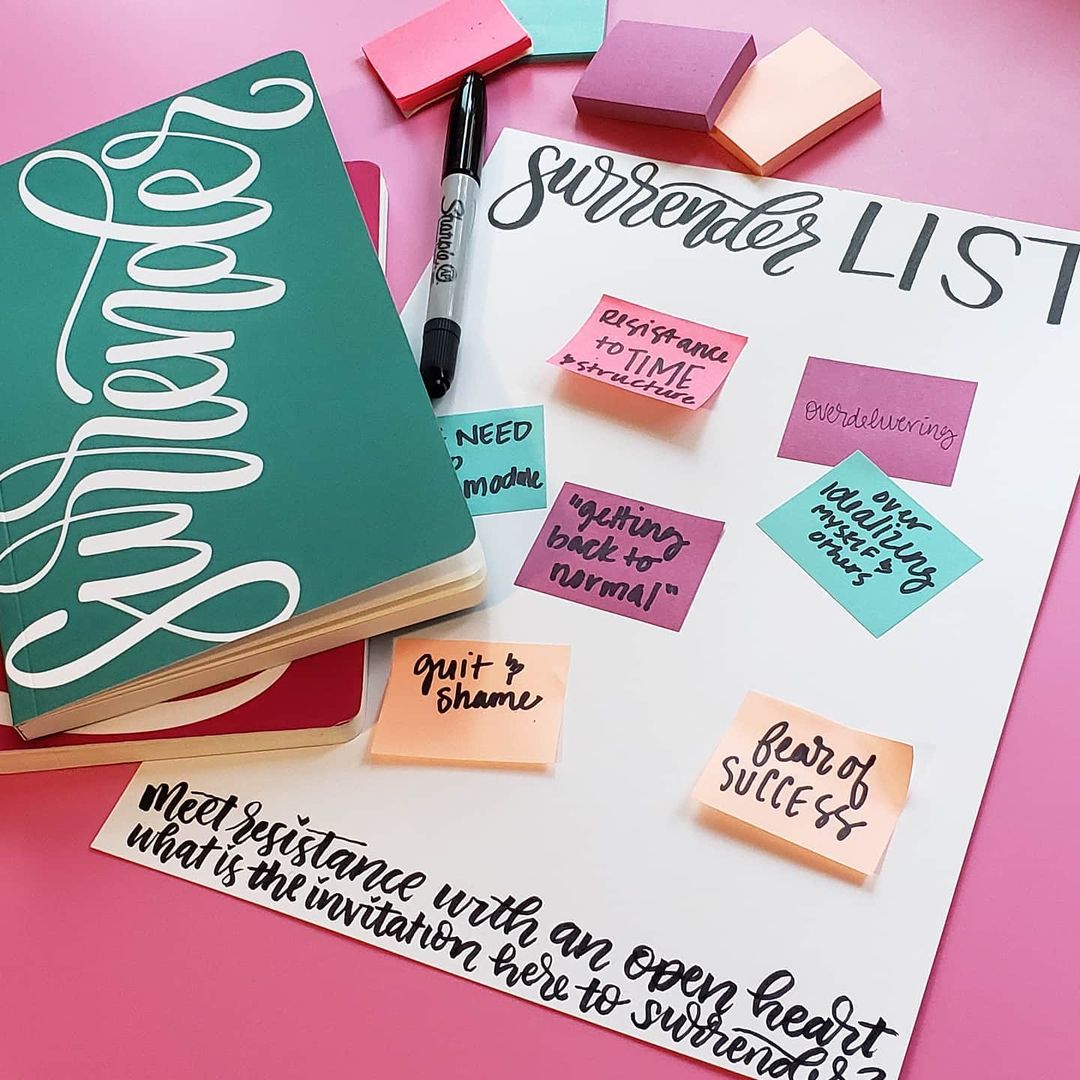 surrender
Sharpie
surrender LIST
resistance
to TIME
& structure
overdelivering
NEED
module
"getting
back to
normal"
over
idealizing
MYSELF &
others
guit &
shame
fear of
SUCCESS
Meet resistance with an open heart
what is the invitation here to surrender?